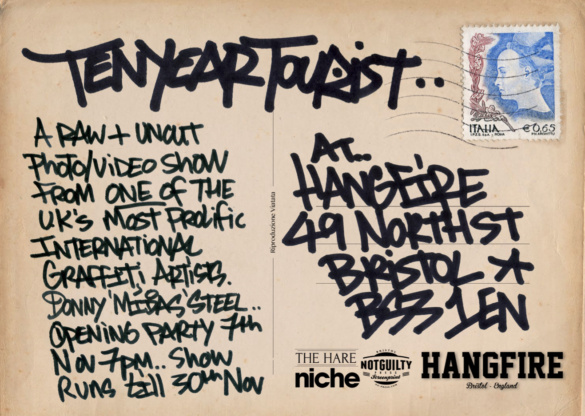 TENYEAR TOURIST..
ITALIA €0,65
A RAW + UNCUT
PHOTO/VIDEO SHOW
FROM ONE OF THE
UK'S MOST PROLIFIC
INTERNATIONAL
GRAFFITI ARTISTS.
STEEL..
OPENING PARTY 7th
NOV 7PM.. SHOW
RUNS till 30th NOV
Riproduzione Vietata
AT..
HANGFIRE
49 NORTH ST
BRISTOL
BS3 1EN
THE HARE
niche
NOTGUILTY
HANGFIRE
Bristol - England